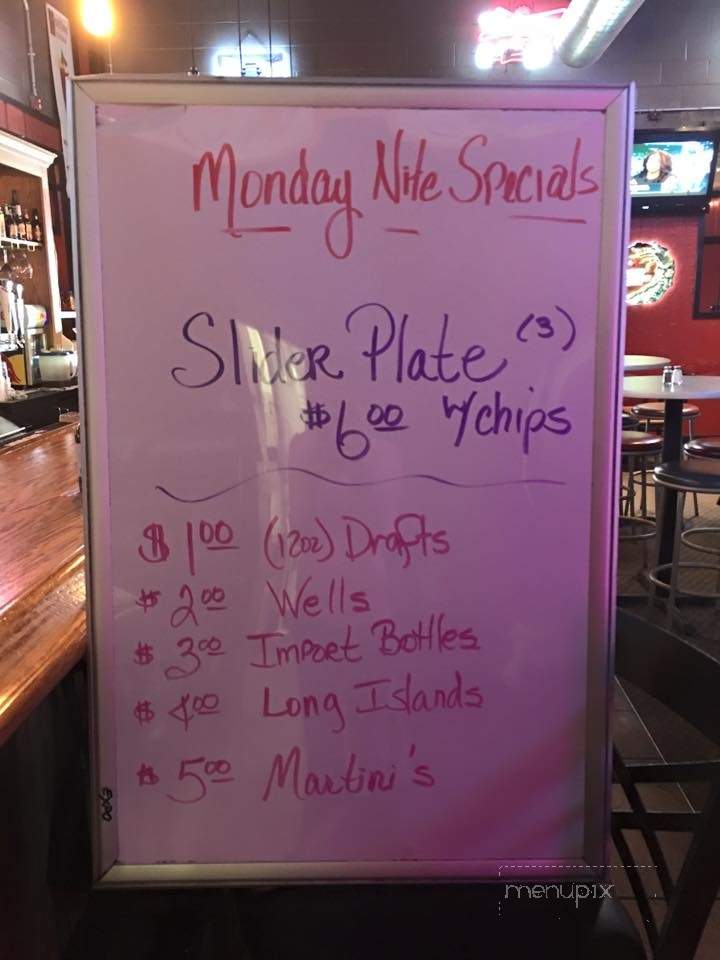 Monday Nite Specials
Slider Plate (3)
$6.00 w/chips
$1.00 (12oz) Drafts
$2.00 Wells
$3.00 Import Bottles
$4.00 Long Islands
$5.00 Martini's
EXPO
menupix